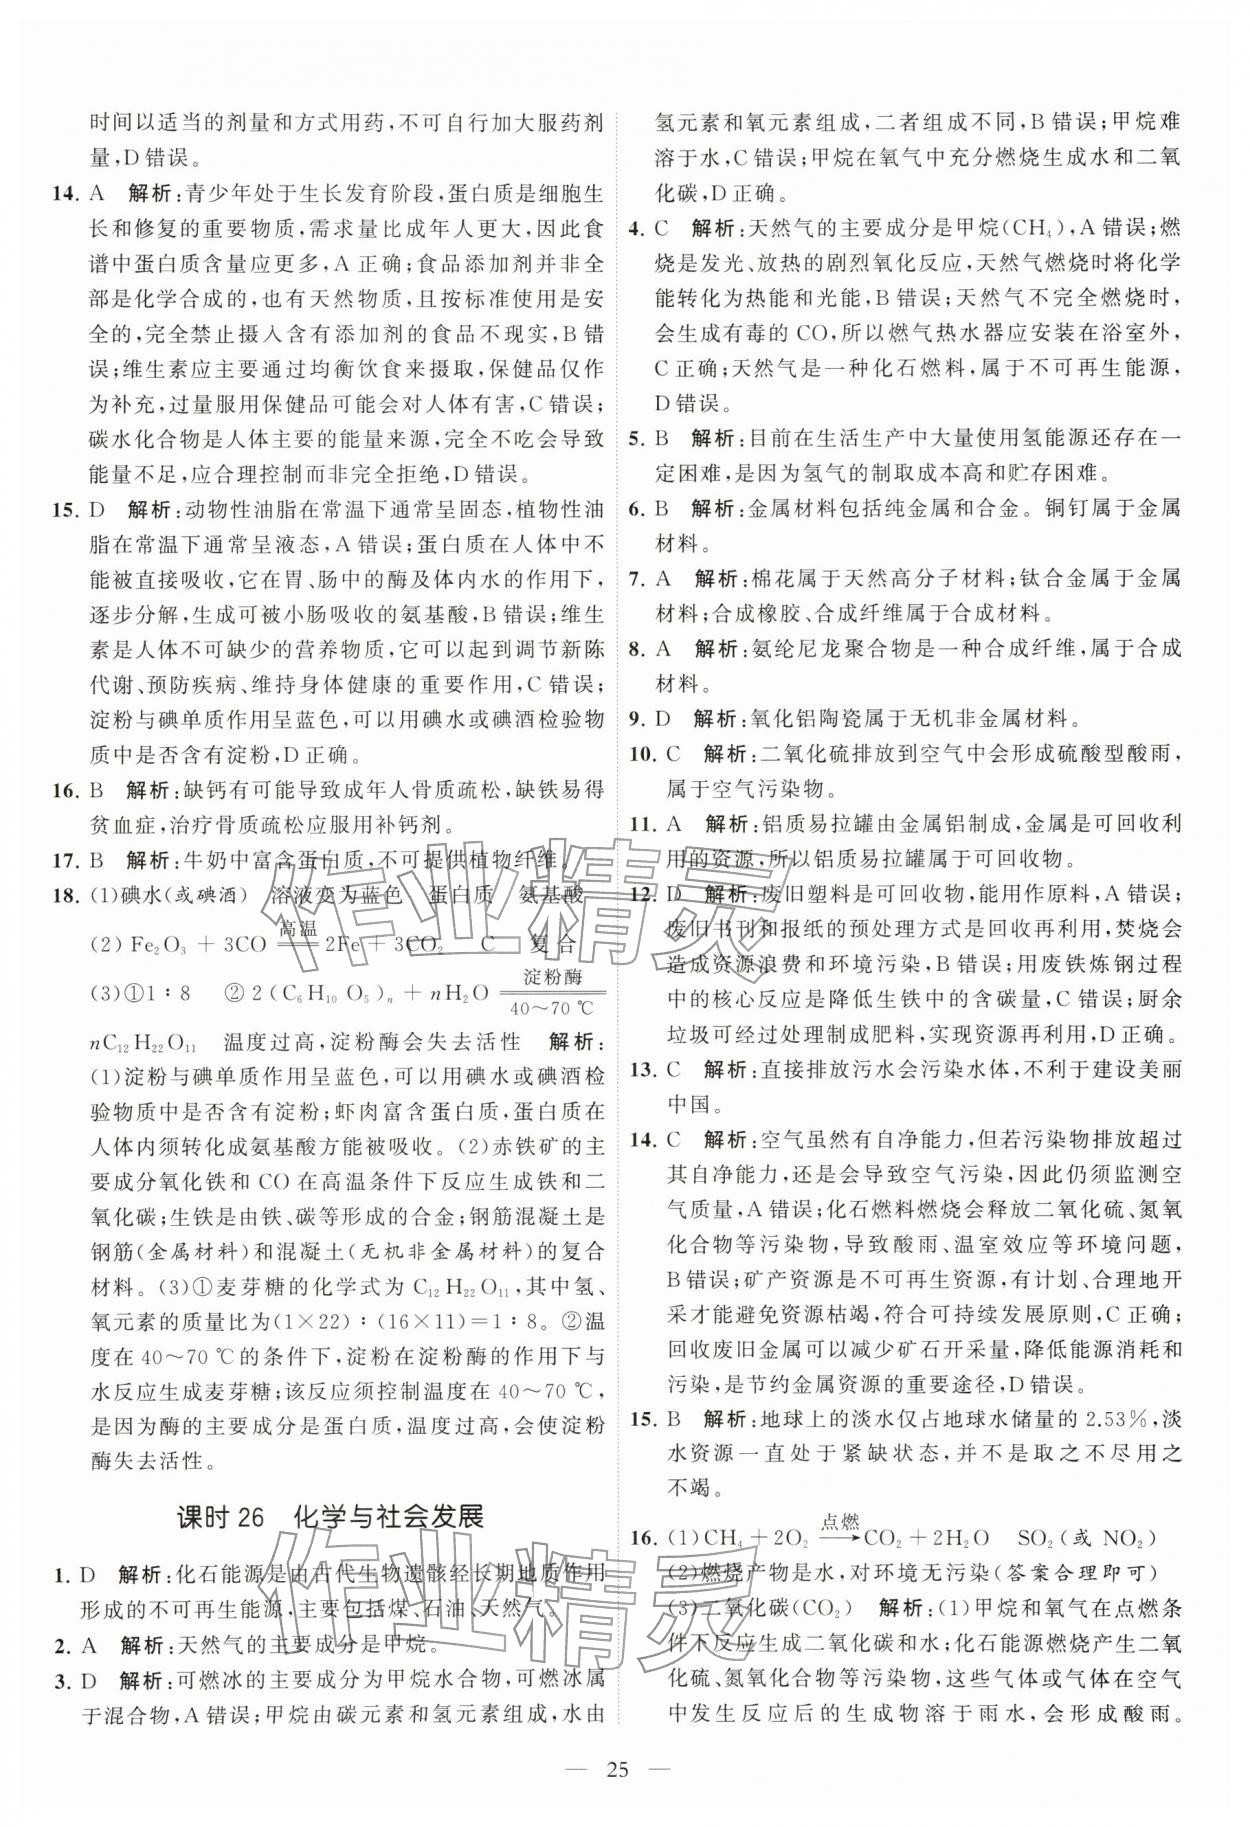 时间以适当的剂量和方式用药,不可自行加大服药剂
量,D错误。
14. A 解析:青少年处于生长发育阶段,蛋白质是细胞生
长和修复的重要物质,需求量比成年人更大,因此食
谱中蛋白质含量应更多,A正确;食品添加剂并非全
部是化学合成的,也有天然物质,且按标准使用是安
全的,完全禁止摄入含有添加剂的食品不现实,B错
误;维生素应主要通过均衡饮食来摄取,保健品仅作
为补充,过量服用保健品可能会对人体有害,C错误;
碳水化合物是人体主要的能量来源,完全不吃会导致
能量不足,应合理控制而非完全拒绝,D错误。
15. D 解析:动物性油脂在常温下通常呈固态,植物性油
脂在常温下通常呈液态,A错误;蛋白质在人体中不
能被直接吸收,它在胃、肠中的酶及体内水的作用下,
逐步分解,生成可被小肠吸收的氨基酸,B错误;维生
素是人体不可缺少的营养物质,可以起到调节新陈
代谢、预防疾病、维持身体健康的重要作用,C错误;
淀粉与碘单质作用呈蓝色,可以用碘水或碘酒检验物
质中是否含有淀粉,D正确。
16. B 解析:缺钙有可能导致成年人骨质疏松,缺铁易得
贫血症,治疗骨质疏松应服用补钙剂。
17. B 解析:牛奶中富含蛋白质,不可提供植物纤维。
18. (1)碘水(或碘酒) 溶液变为蓝色 蛋白质 氨基酸
(2) Fe₂O₃ + 3CO ══高温══ 2Fe + 3CO₂ C 复合
(3)①1∶8 ②2(C₆H₁₀O₅)ₙ + nH₂O ══淀粉酶 40～70 ℃══
nC₁₂H₂₂O₁₁ 温度过高,淀粉酶会失去活性 解析:
(1)淀粉与碘单质作用呈蓝色,可以用碘水或碘酒检
验物质中是否含有淀粉;虾肉富含蛋白质,蛋白质在
人体内须转化成氨基酸方能被吸收。(2)赤铁矿的主
要成分氧化铁和CO在高温条件下反应生成铁和二
氧化碳;生铁是由铁、碳等形成的合金;钢筋混凝土是
钢筋(金属材料)和混凝土(无机非金属材料)的复合
材料。(3)①麦芽糖的化学式为C₁₂H₂₂O₁₁,其中氢、
氧元素的质量比为(1×22)∶(16×11)=1∶8。②温
度在40～70 ℃的条件下,淀粉在淀粉酶的作用下与
水反应生成麦芽糖;该反应须控制温度在40～70 ℃,
是因为酶的主要成分是蛋白质,温度过高,会使淀粉
酶失去活性。
课时26 化学与社会发展
1. D 解析:化石能源是由古代生物遗骸经长期地质作用
形成的不可再生能源,主要包括煤、石油、天然气。
2. A 解析:天然气的主要成分是甲烷。
3. D 解析:可燃冰的主要成分为甲烷水合物,可燃冰属
于混合物,A错误;甲烷由碳元素和氢元素组成,水由
氢元素和氧元素组成,二者组成不同,B错误;甲烷难
溶于水,C错误;甲烷在氧气中充分燃烧生成水和二氧
化碳,D正确。
4. C 解析:天然气的主要成分是甲烷(CH₄),A错误;燃
烧是发光、放热的剧烈氧化反应,天然气燃烧时将化学
能转化为热能和光能,B错误;天然气不完全燃烧时,
会生成有毒的CO,所以燃气热水器应安装在浴室外,
C正确;天然气是一种化石燃料,属于不可再生能源,
D错误。
5. B 解析:目前在生活生产中大量使用氢能源还存在一
定困难,是因为氢气的制取成本高和贮存困难。
6. B 解析:金属材料包括纯金属和合金。铜钉属于金属
材料。
7. A 解析:棉花属于天然高分子材料;钛合金属于金属
材料;合成橡胶、合成纤维属于合成材料。
8. A 解析:氨纶尼龙聚合物是一种合成纤维,属于合成
材料。
9. D 解析:氧化铝陶瓷属于无机非金属材料。
10. C 解析:二氧化硫排放到空气中会形成硫酸型酸雨,
属于空气污染物。
11. A 解析:铝质易拉罐由金属铝制成,具有可回收利
用的资源,所以铝质易拉罐属于可回收物。
12. D 解析:废旧塑料是可回收物,能用作原料,A错误;
废旧书刊和报纸的预处理方式是回收再利用,焚烧会
造成资源浪费和环境污染,B错误;用废铁炼钢过程
中的核心反应是降低生铁中的含碳量,C错误;厨余
垃圾可经过处理制成肥料,实现资源再利用,D正确。
13. C 解析:直接排放污水会污染水体,不利于建设美丽
中国。
14. C 解析:空气虽然有自净能力,但若污染物排放超过
其自净能力,还是会导致空气污染,因此仍须监测空
气质量,A错误;化石燃料燃烧会释放二氧化硫、氮氧
化合物等污染物,导致酸雨、温室效应等环境问题,
B错误;矿产资源是不可再生资源,有计划、合理地开
采才能避免资源枯竭,符合可持续发展原则,C正确;
回收废旧金属可以减少矿石开采量,降低能源消耗和
污染,是节约金属资源的重要途径,D错误。
15. B 解析:地球上的淡水仅占地球水储量的2.53%,淡
水资源一直处于紧缺状态,并不是取之不尽用之
不竭。
16. (1)CH₄+2O₂ —点燃→ CO₂+2H₂O SO₂(或NO₂)
(2)燃烧产物是水,对环境无污染(答案合理即可)
(3)二氧化碳(CO₂) 解析:(1)甲烷和氧气在点燃条
件下反应生成二氧化碳和水;化石能源燃烧产生二氧
化硫、氮氧化合物等污染物,这些气体或气体在空气
中发生反应后的生成物溶于雨水,会形成酸雨。
— 25 —
作业精灵
作业精灵